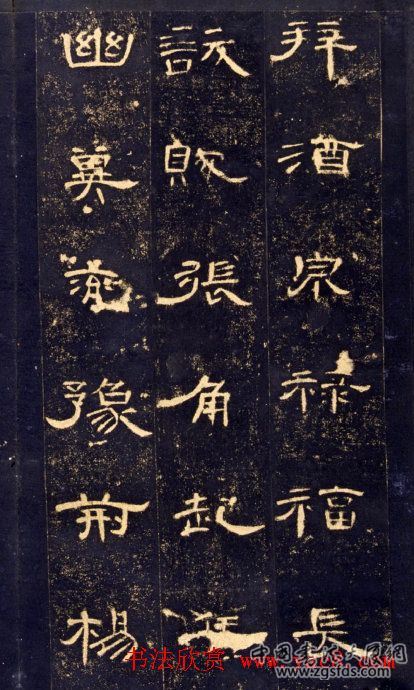 拜酒泉祿福長
訞賊張角起兵
幽冀兗豫荊楊
书法欣赏
www.zgsfds.com